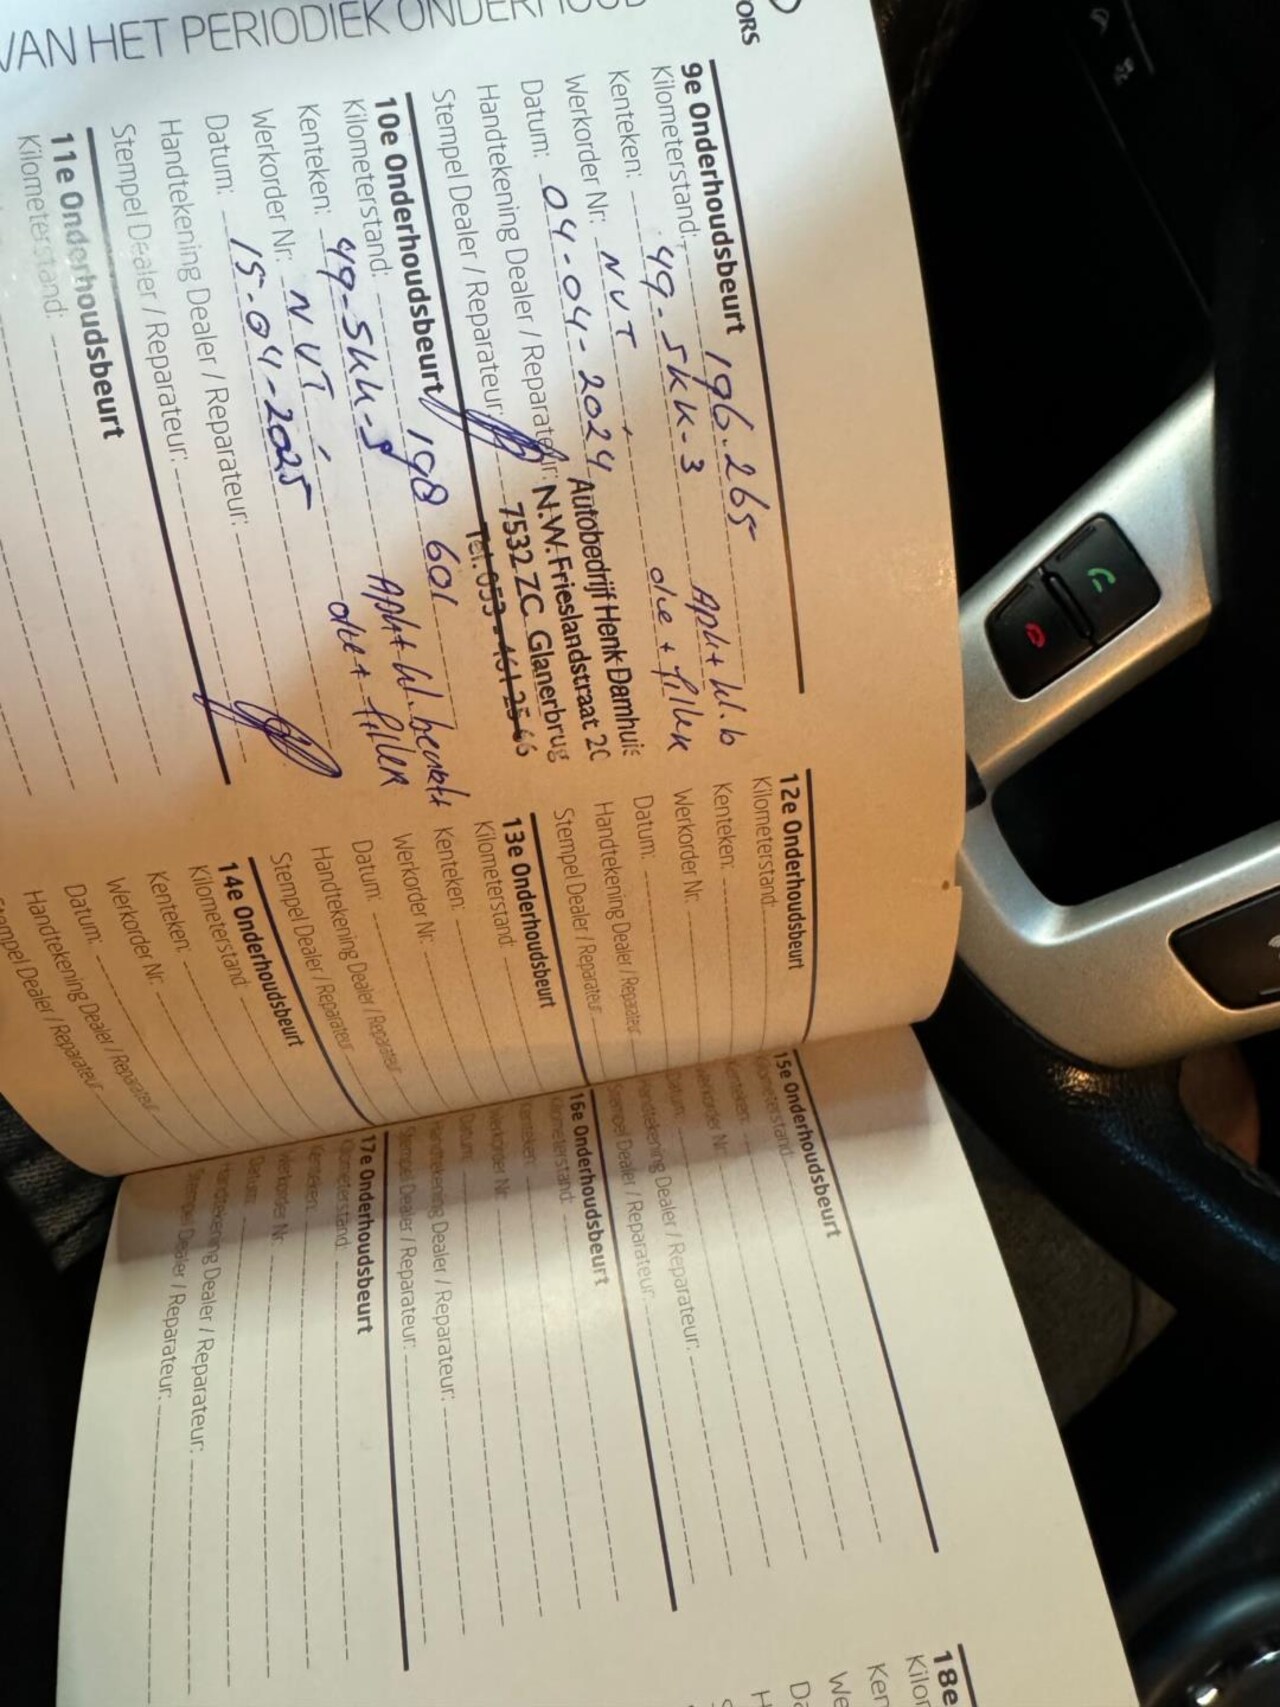 VAN HET PERIODIEK ONDERHOUD
ORS
9e Onderhoudsbeurt
Kilometerstand: 196.265
Kenteken: 49-SKK-3 Apk + kl.b
Werkorder Nr: NVT olie + filter
Datum: 04-04-2024
Handtekening Dealer / Reparateur:
Stempel Dealer / Reparateur:
Autobedrijf Henk Damhuis
N.W. Frieslandstraat 2C
7532 ZC Glanerbrug
Tel. 053 - 461 25 66
10e Onderhoudsbeurt
Kilometerstand: 198 601
Kenteken: 49-SKK-3 Apk + kl. beurt +
Werkorder Nr: NVT olie + filter
Datum: 15-04-2025
Handtekening Dealer / Reparateur:
Stempel Dealer / Reparateur:
11e Onderhoudsbeurt
Kilometerstand:
12e Onderhoudsbeurt
Kilometerstand:
Kenteken:
Werkorder Nr:
Datum:
Handtekening Dealer / Reparateur:
Stempel Dealer / Reparateur:
13e Onderhoudsbeurt
Kilometerstand:
Kenteken:
Werkorder Nr:
Datum:
Handtekening Dealer / Reparateur:
Stempel Dealer / Reparateur:
14e Onderhoudsbeurt
Kilometerstand:
Kenteken:
Werkorder Nr:
Datum:
Handtekening Dealer / Reparateur:
Stempel Dealer / Reparateur:
15e Onderhoudsbeurt
Kilometerstand:
Kenteken:
Werkorder Nr:
Datum:
Handtekening Dealer / Reparateur:
Stempel Dealer / Reparateur:
16e Onderhoudsbeurt
Kilometerstand:
Kenteken:
Werkorder Nr:
Datum:
Handtekening Dealer / Reparateur:
Stempel Dealer / Reparateur:
17e Onderhoudsbeurt
Kilometerstand:
Kenteken:
Werkorder Nr:
Datum:
Handtekening Dealer / Reparateur:
Stempel Dealer / Reparateur:
18e
Kilor
Ken
We
Da
H